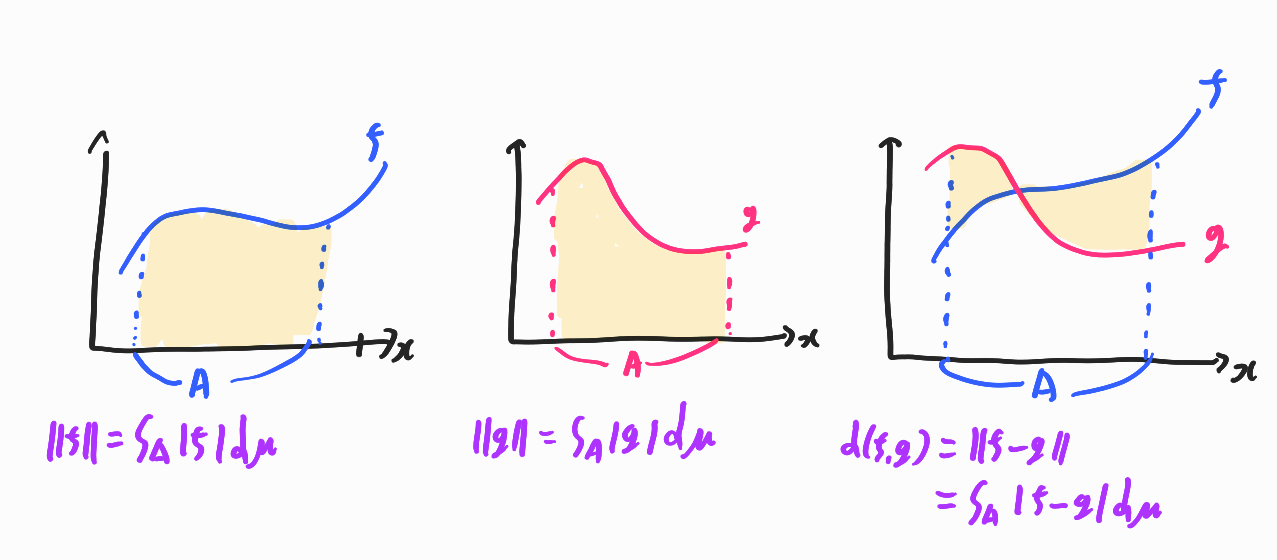 f
x
A
||f|| = ∫_A |f| dμ
g
x
A
||g|| = ∫_A |g| dμ
f
g
x
A
d(f,g) = ||f-g||
= ∫_A |f-g| dμ